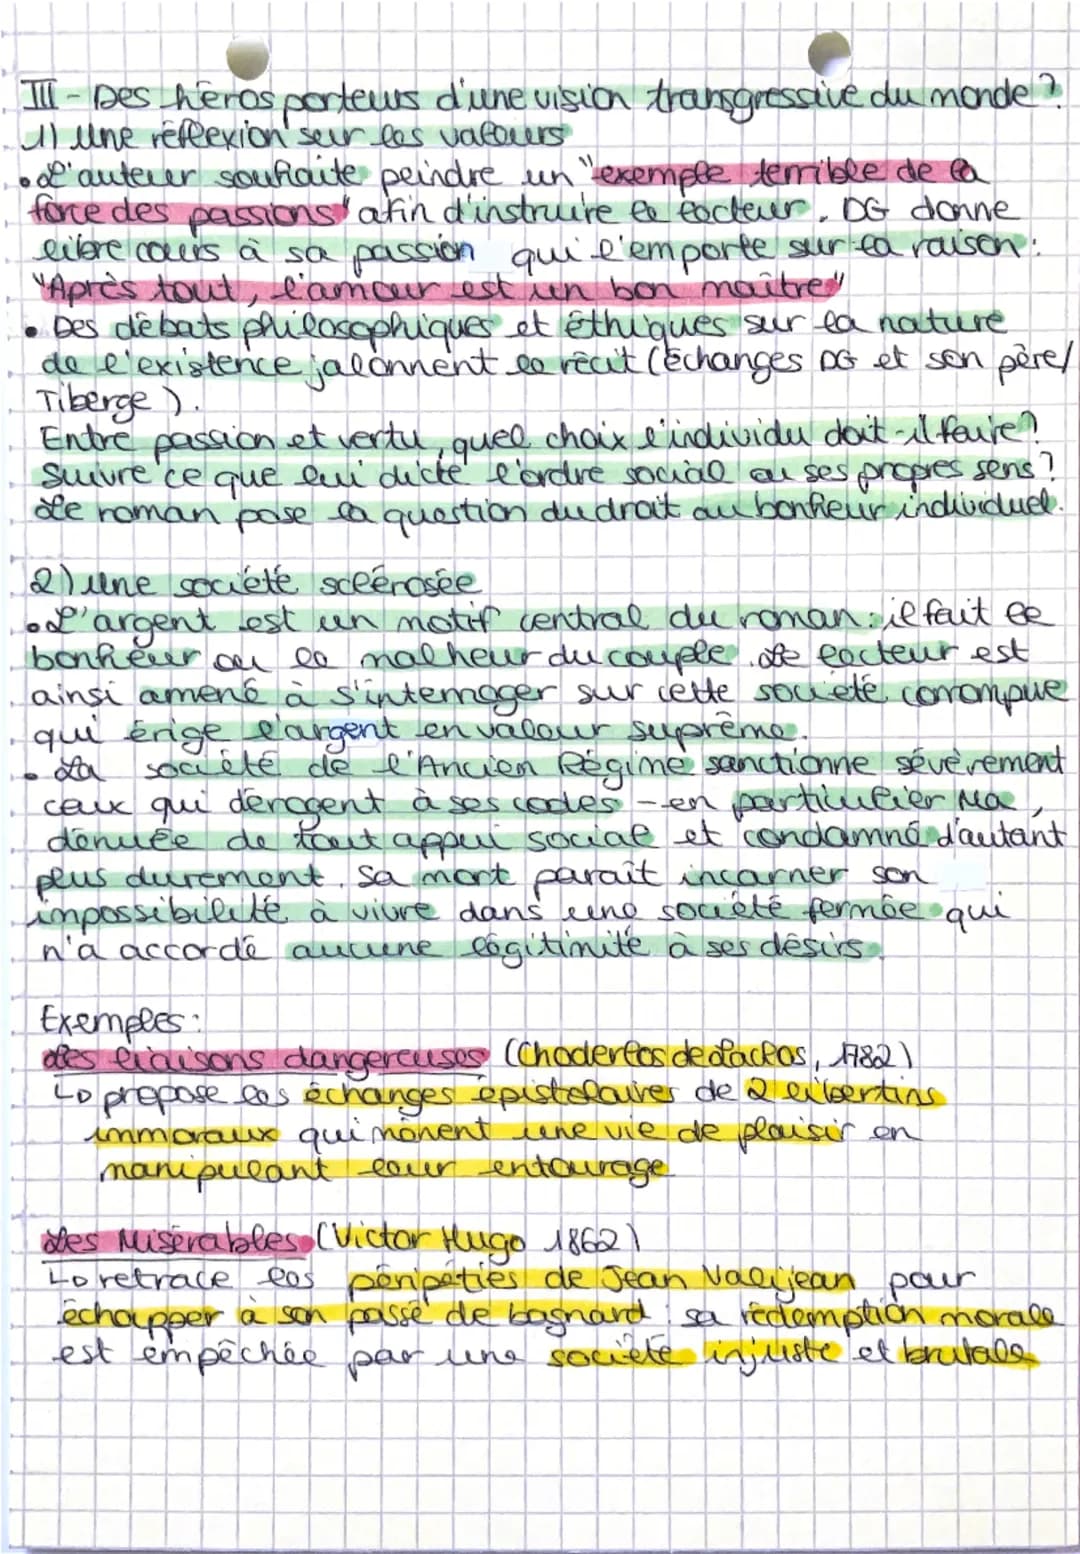 III - Des héros porteurs d'une vision transgressive du monde ?
1) Une réflexion sur les valeurs
• L'auteur souhaite peindre un "exemple terrible de la
force des passions" afin d'instruire le lecteur. DG donne
libre cours à sa passion qui l'emporte sur la raison :
"Après tout, l'amour est un bon maître"
• Des débats philosophiques et éthiques sur la nature
de l'existence jalonnent le récit (échanges DG et son père/
Tiberge).
Entre passion et vertu, quel choix l'individu doit-il faire ?
Suivre ce que lui dicte l'ordre social ou ses propres sens ?
Le roman pose la question du droit au bonheur individuel.
2) Une société sclérosée
• L'argent est un motif central du roman : il fait le
bonheur ou le malheur du couple. Le lecteur est
ainsi amené à s'interroger sur cette société corrompue
qui érige l'argent en valeur suprême.
• La société de l'Ancien Régime sanctionne sévèrement
ceux qui dérogent à ses codes - en particulier Ma,
dénuée de tout appui social et condamné d'autant
plus durement. Sa mort parait incarner son
impossibilité à vivre dans une société fermée qui
n'a accordé aucune légitimité à ses désirs.
Exemples :
Les liaisons dangereuses (Choderlos de Laclos, 1782)
↳ propose les échanges épistolaires de 2 libertins
immoraux qui mènent une vie de plaisir en
manipulant leur entourage
Les Misérables (Victor Hugo 1862)
↳ retrace les péripéties de Jean Valjean pour
échapper à son passé de bagnard : sa rédemption morale
est empêchée par une société injuste et brutale